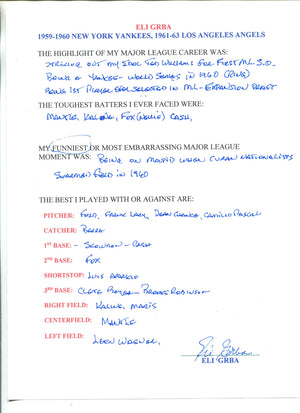 ELI GRBA
1959-1960 NEW YORK YANKEES, 1961-63 LOS ANGELES ANGELS
THE HIGHLIGHT OF MY MAJOR LEAGUE CAREER WAS:
STRIKING OUT MY IDOL TED WILLIAMS FOR FIRST M.L. S.O.
BEING A YANKEE - WORLD SERIES IN 1960 (RING)
BEING 1ST PLAYER EVER SELECTED IN M.L. EXPANSION DRAFT
THE TOUGHEST BATTERS I EVER FACED WERE:
MANTLE, KALINE, FOX (NELLIE) CASH,
MY FUNNIEST OR MOST EMBARRASSING MAJOR LEAGUE
MOMENT WAS: BEING ON MOUND WHEN CUBAN NATIONALISTS
SWARMED FIELD IN 1960
THE BEST I PLAYED WITH OR AGAINST ARE:
PITCHER: FORD, FRANK LARY, DEAN CHANCE, CAMILO PASCUAL
CATCHER: BERRA
1ST BASE: - SKOWRON - CASH
2ND BASE: FOX
SHORTSTOP: LUIS APARICIO
3RD BASE: CLETE BOYER - BROOKS ROBINSON
RIGHT FIELD: KALINE, MARIS
CENTERFIELD: MANTLE
LEFT FIELD: LEON WAGNER,
Eli Grba
ELI GRBA